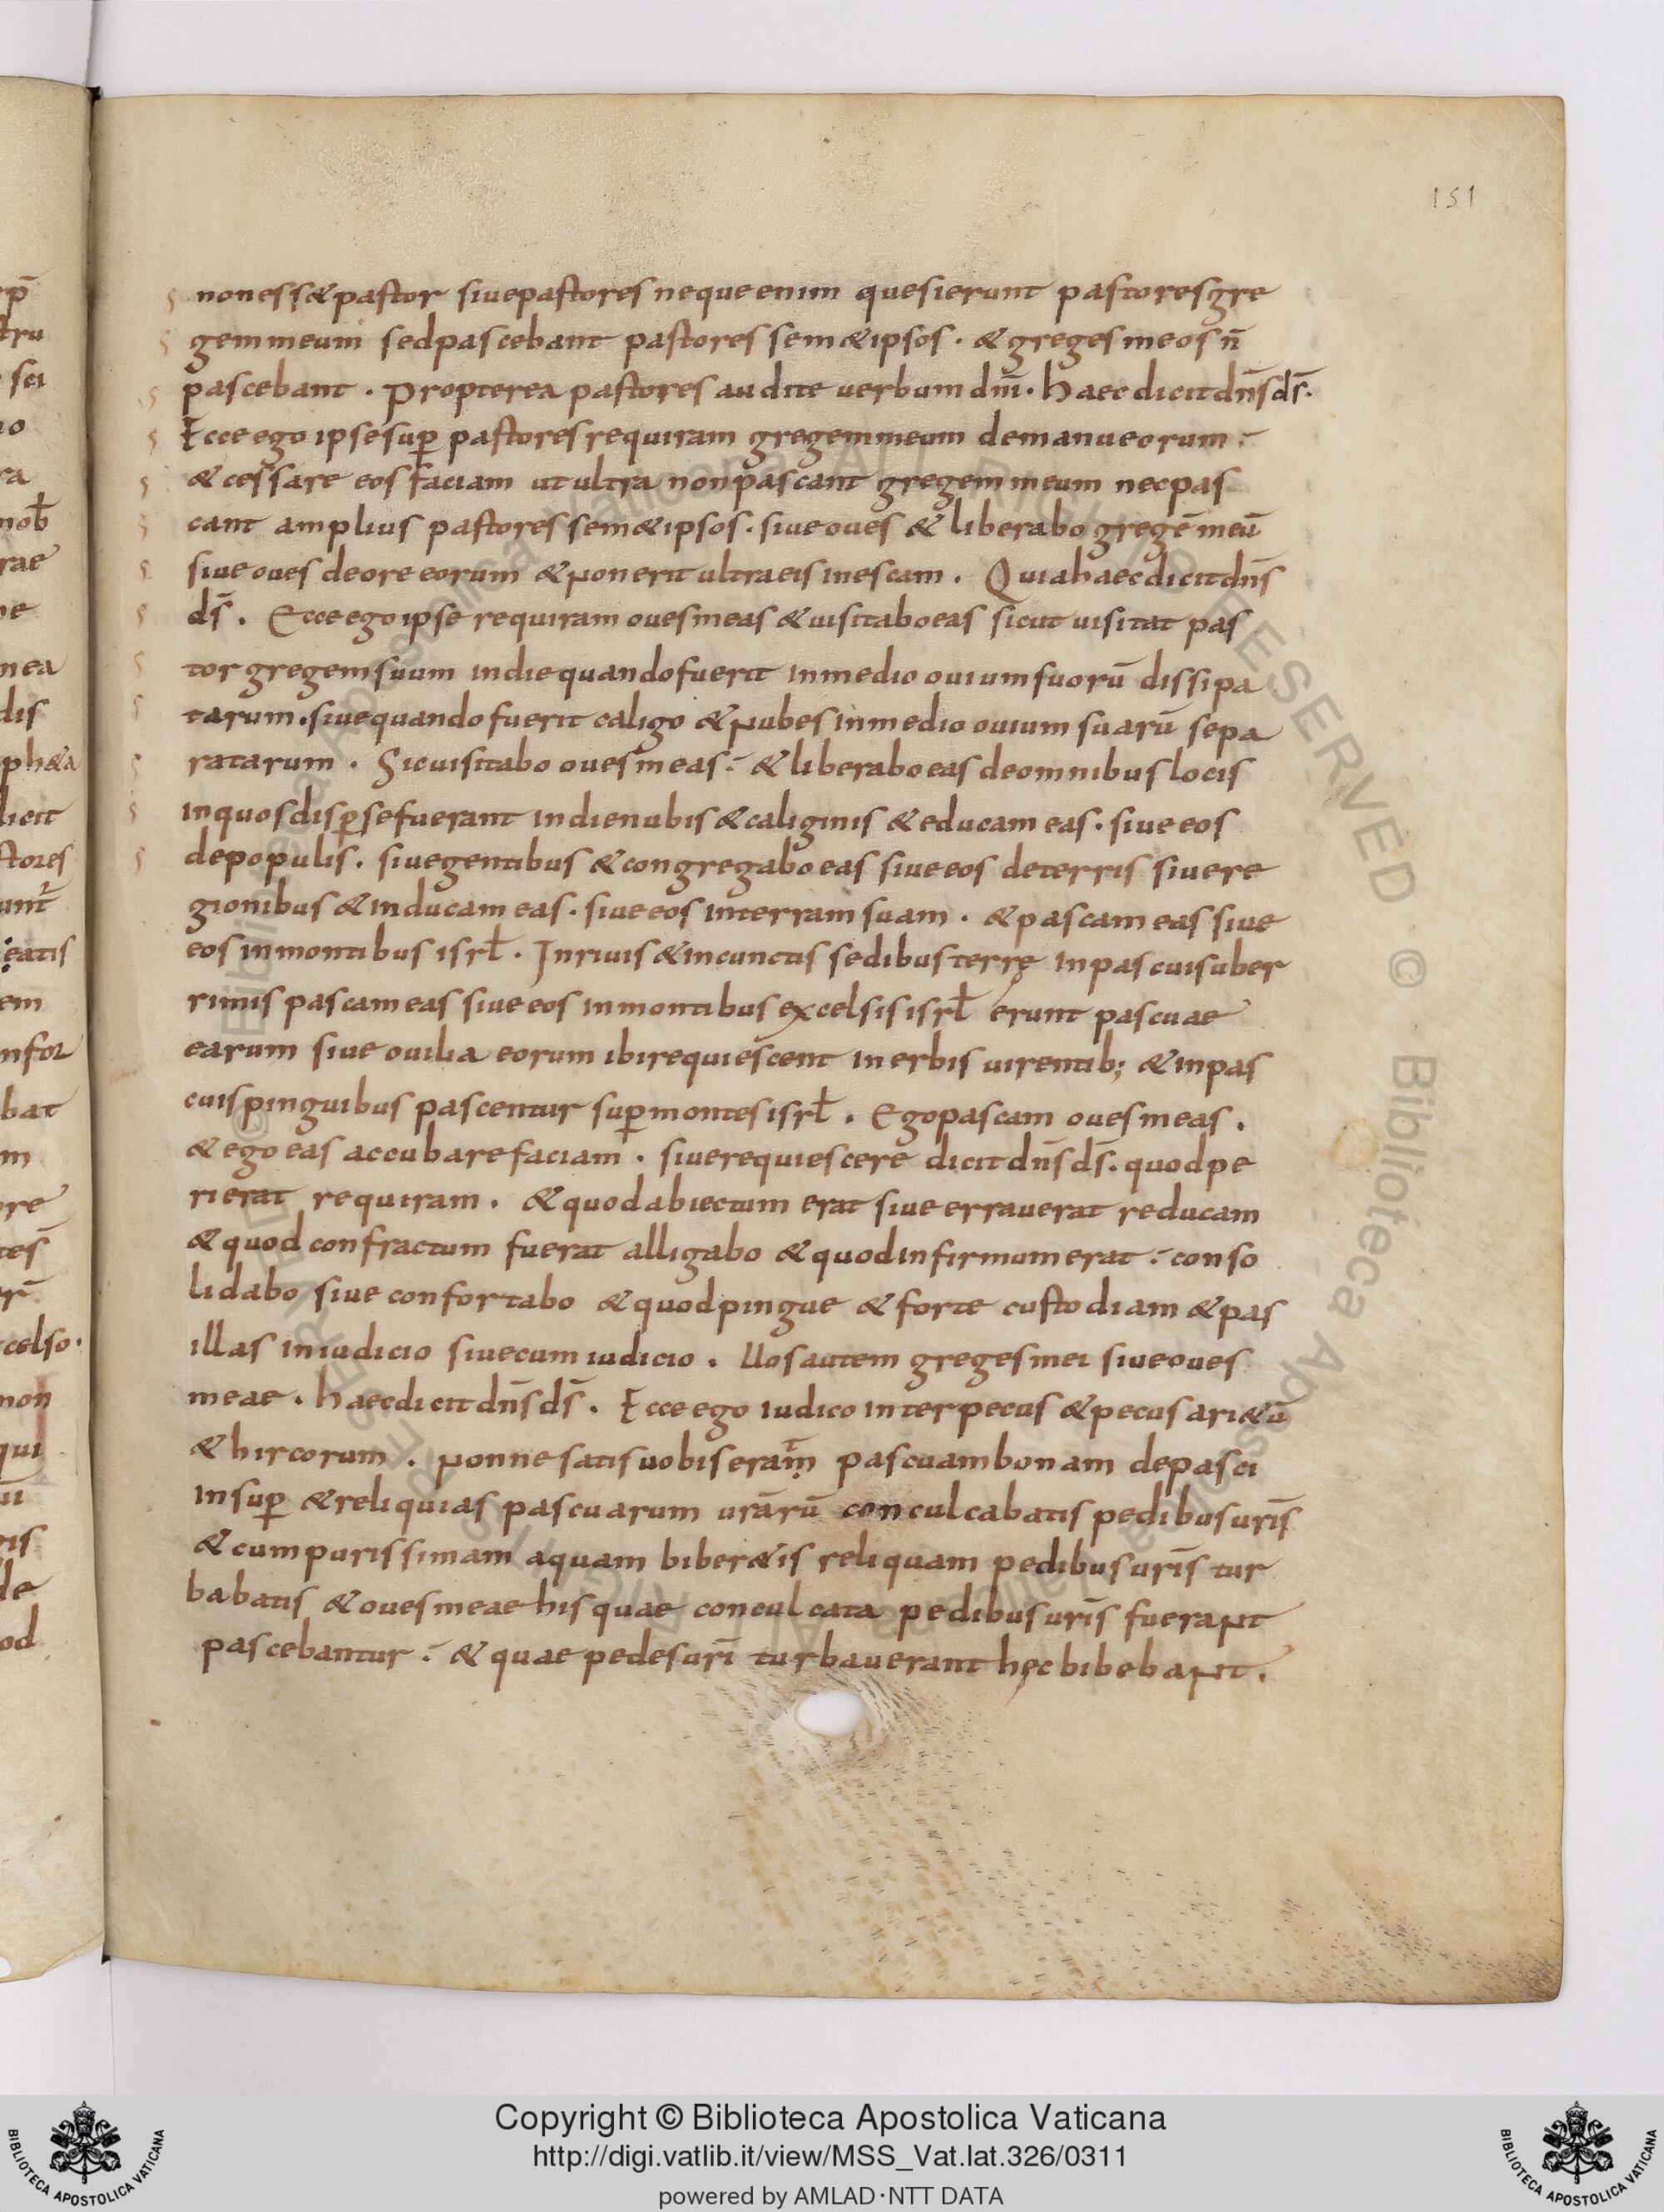 151
non ess& pastor siue pastores neque enim quesierunt pastores gre
gem meum sed pascebant pastores sem&ipsos · & greges meos n̄
pascebant · Propterea pastores audite uerbum dn̄i · haec dicit dn̄s ds̄ ·
Ecce ego ipse sup̄ pastores requiram gregem meum de manu eorum :
& cessare eos faciam ut ultra non pascant gregem meum nec pas
cant amplius pastores sem&ipsos · siue oues & liberabo gregē meū
siue oues de ore eorum & non erit ultra eis in escam . Quia haec dicit dn̄s
ds̄ . Ecce ego ipse requiram oues meas & uisitabo eas sicut uisitat pas
tor gregem suum in die quando fuerit in medio ouium suorū dissipa
tarum . siue quando fuerit caligo & nubes in medio ouium suarū sepa
ratarum . Sic uisitabo oues meas : & liberabo eas de omnibus locis
in quos disp̄se fuerant in die nubis & caliginis & educam eas . siue eos
de populis . siue gentibus & congregabo eas siue eos de terris siue re
gionibus & inducam eas . siue eos in terram suam . & pascam eas siue
eos in montibus isrł . In riuis & in cunctis sedibus terrę in pascuis uber
rimis pascam eas siue eos in montibus excelsis isrł erunt pascuae
earum siue ouilia eorum ibi requiescent in erbis uirentib; & in pas
cuis pinguibus pascentur sup̄ montes isrł . Ego pascam oues meas .
& ego eas accubare faciam . siue requiescere dicit dn̄s ds̄ . quod pe
rierat requiram . & quod abiectum erat siue errauerat reducam
& quod confractum fuerat alligabo & quod infirmum erat : conso
lidabo siue confortabo & quod pingue & forte custodiam & pas
illas in iudicio siue cum iudicio . Uos autem greges mei siue oues
meae . haec dicit dn̄s ds̄ . Ecce ego iudico inter pecus & pecus ari&ū
& hircorum . nonne satis uobis erat pascuam bonam depasci
insup̄ & reliquias pascuarum ur̄arū conculcabatis pedibus ur̄is
& cum purissimam aquam biber&is reliquam pedibus ur̄is tur
babatis & oues meae his quae conculcata pedibus ur̄is fuerant
pascebantur : & quae pedes ur̄i turbauerant hęc bibebant .
Copyright © Biblioteca Apostolica Vaticana
http://digi.vatlib.it/view/MSS_Vat.lat.326/0311
powered by AMLAD·NTT DATA
BIBLIOTECA APOSTOLICA VATICANA
BIBLIOTECA APOSTOLICA VATICANA